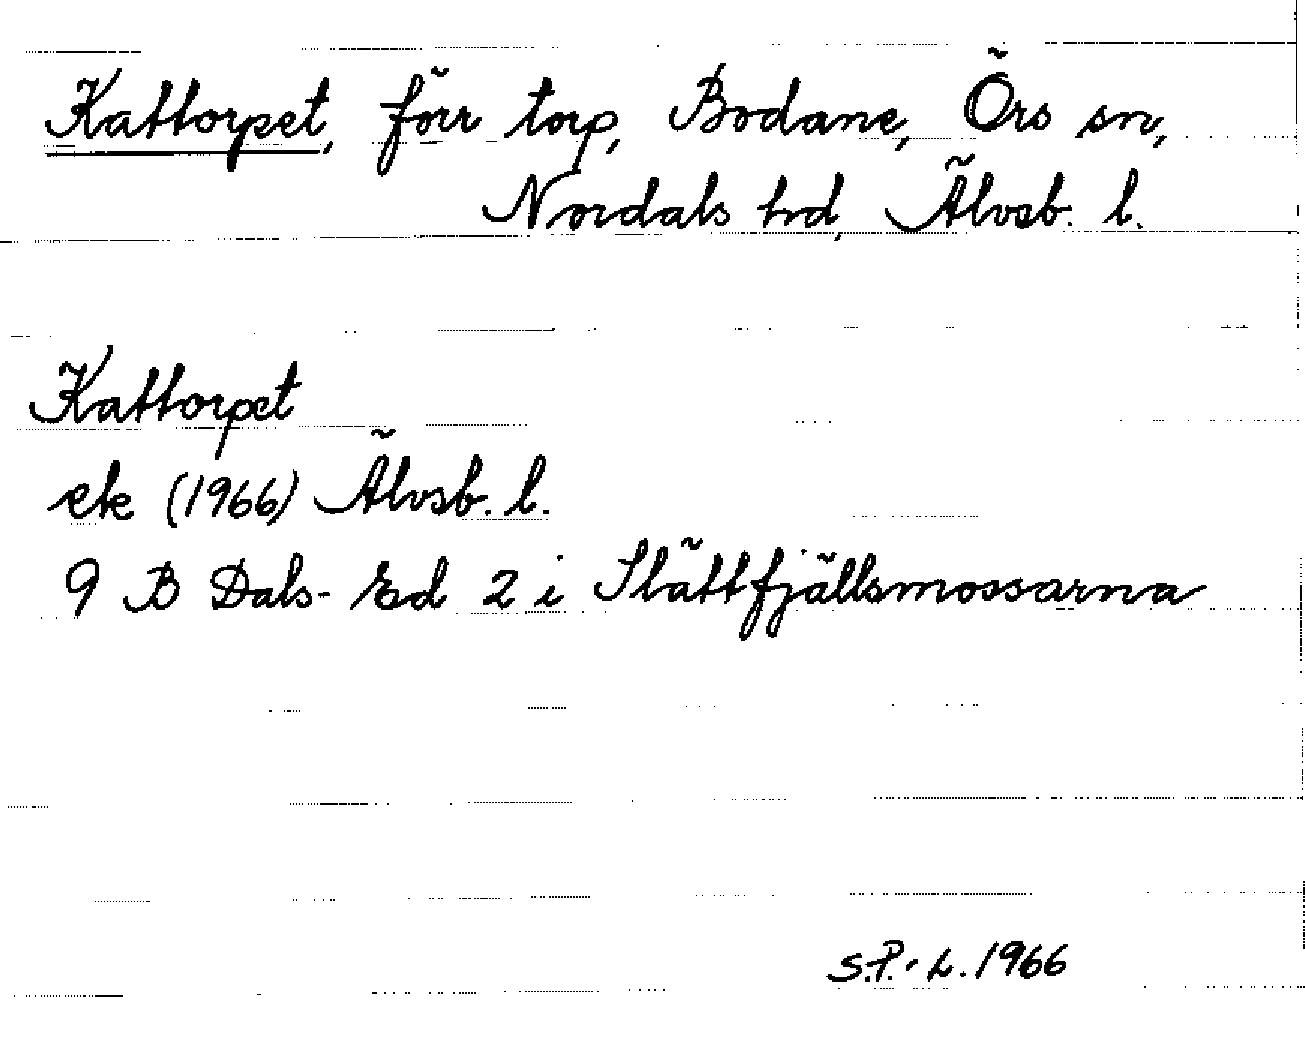 Kattorpet, förr torp, Bodane, Örs sn,
Nordals hd, Älvsb. l.
Kattorpet
ek (1966) Älvsb. l.
9 B Dals-Ed 2 i Slättfjällsmossarna
S.P.-L. 1966